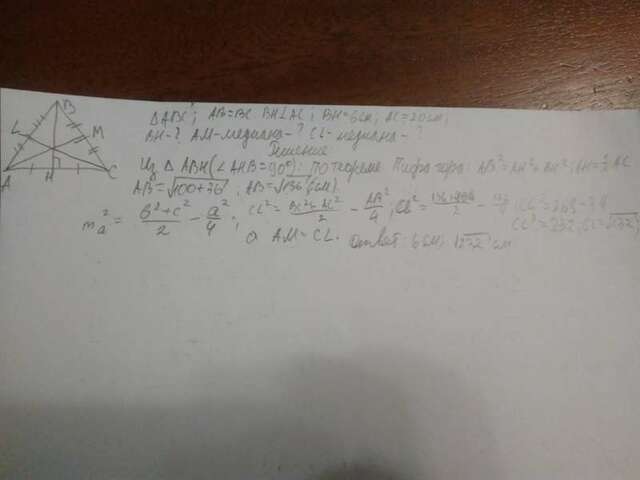 B
L
M
A
H
C
ΔABC; AB=BC BH⊥AC; BH=6см; AC=20см;
BH-? AM-медиана-? CL-медиана-?
Решение
Из ΔABH(∠AHB=90°): По теореме Пифагора: AB²=AH²+BH²; AH=½AC
AB=√100+36; AB=√136(см).
mₐ²=(b²+c²)/2 - a²/4; CL²=(BC²+AC²)/2 - AB²/4; CL²= /2 - /4; CL²=268-34
CL²=232; CL=√232;
а AM=CL. Ответ: 6см; √232 см